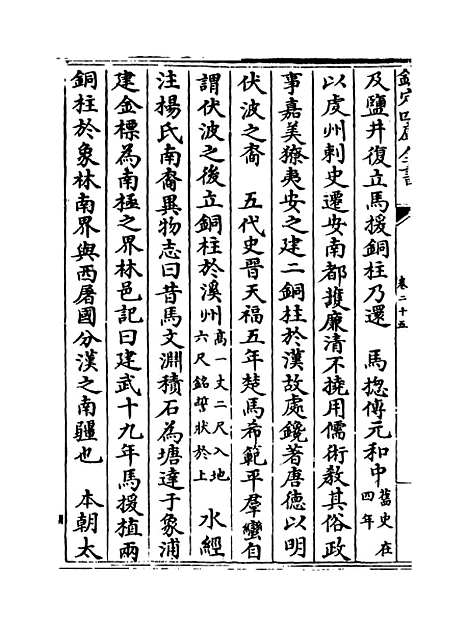 欽定四庫全書
卷二十五
及鹽井復立馬援銅柱乃還　馬揔傳元和中舊史在四年
以虔州刺史遷安南都護廉清不撓用儒術教其俗政
事嘉美獠夷安之建二銅柱於漢故處鑱著唐德以明
伏波之裔　五代史晉天福五年楚馬希範平羣蠻自
謂伏波之後立銅柱於溪州高一丈二尺入地六尺銘誓狀於上　水經
注楊氏南裔異物志曰昔馬文淵積石為塘達于象浦
建金標為南極之界林邑記曰建武十九年馬援植兩
銅柱於象林南界與西屠國分漢之南疆也　本朝太